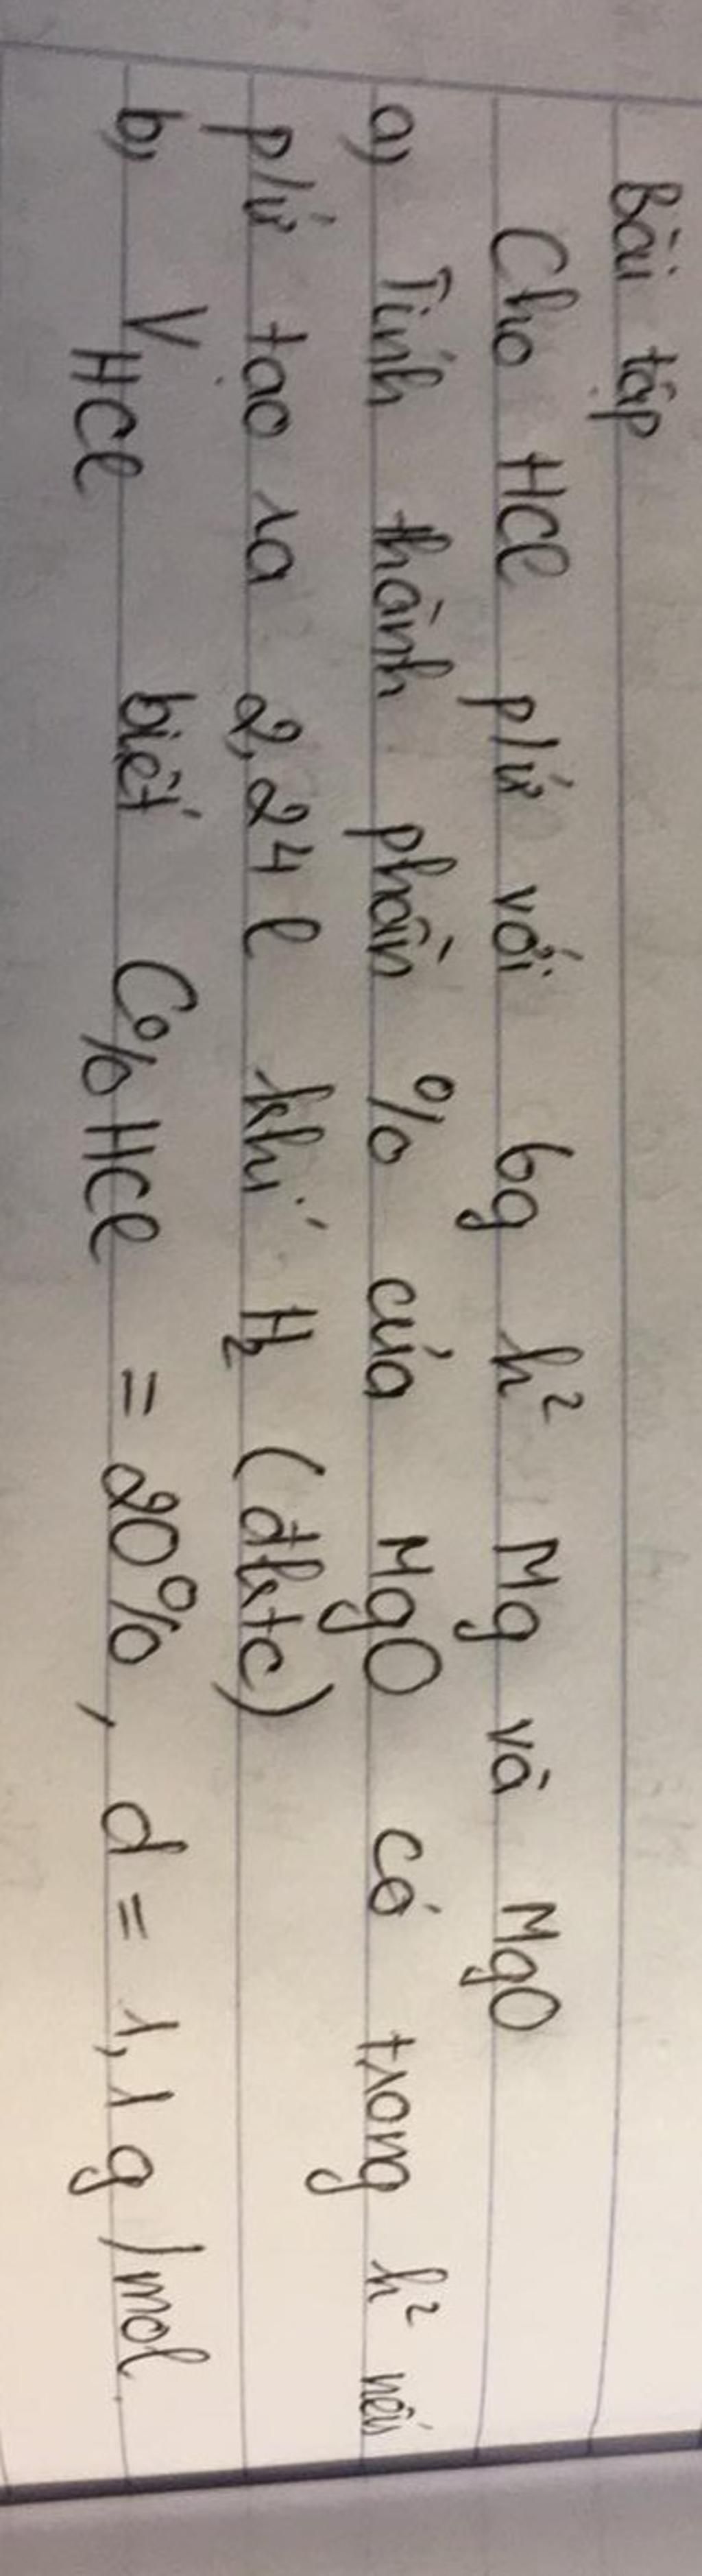 Bài tập
Cho HCl p/ứ với 6g h² Mg và MgO
a, Tính thành phần % của MgO có trong h² nếu
p/ứ tạo ra 2,24 l khí H₂ (đktc)
b, V HCl biết C% HCl = 20%, d = 1,1 g/mol.